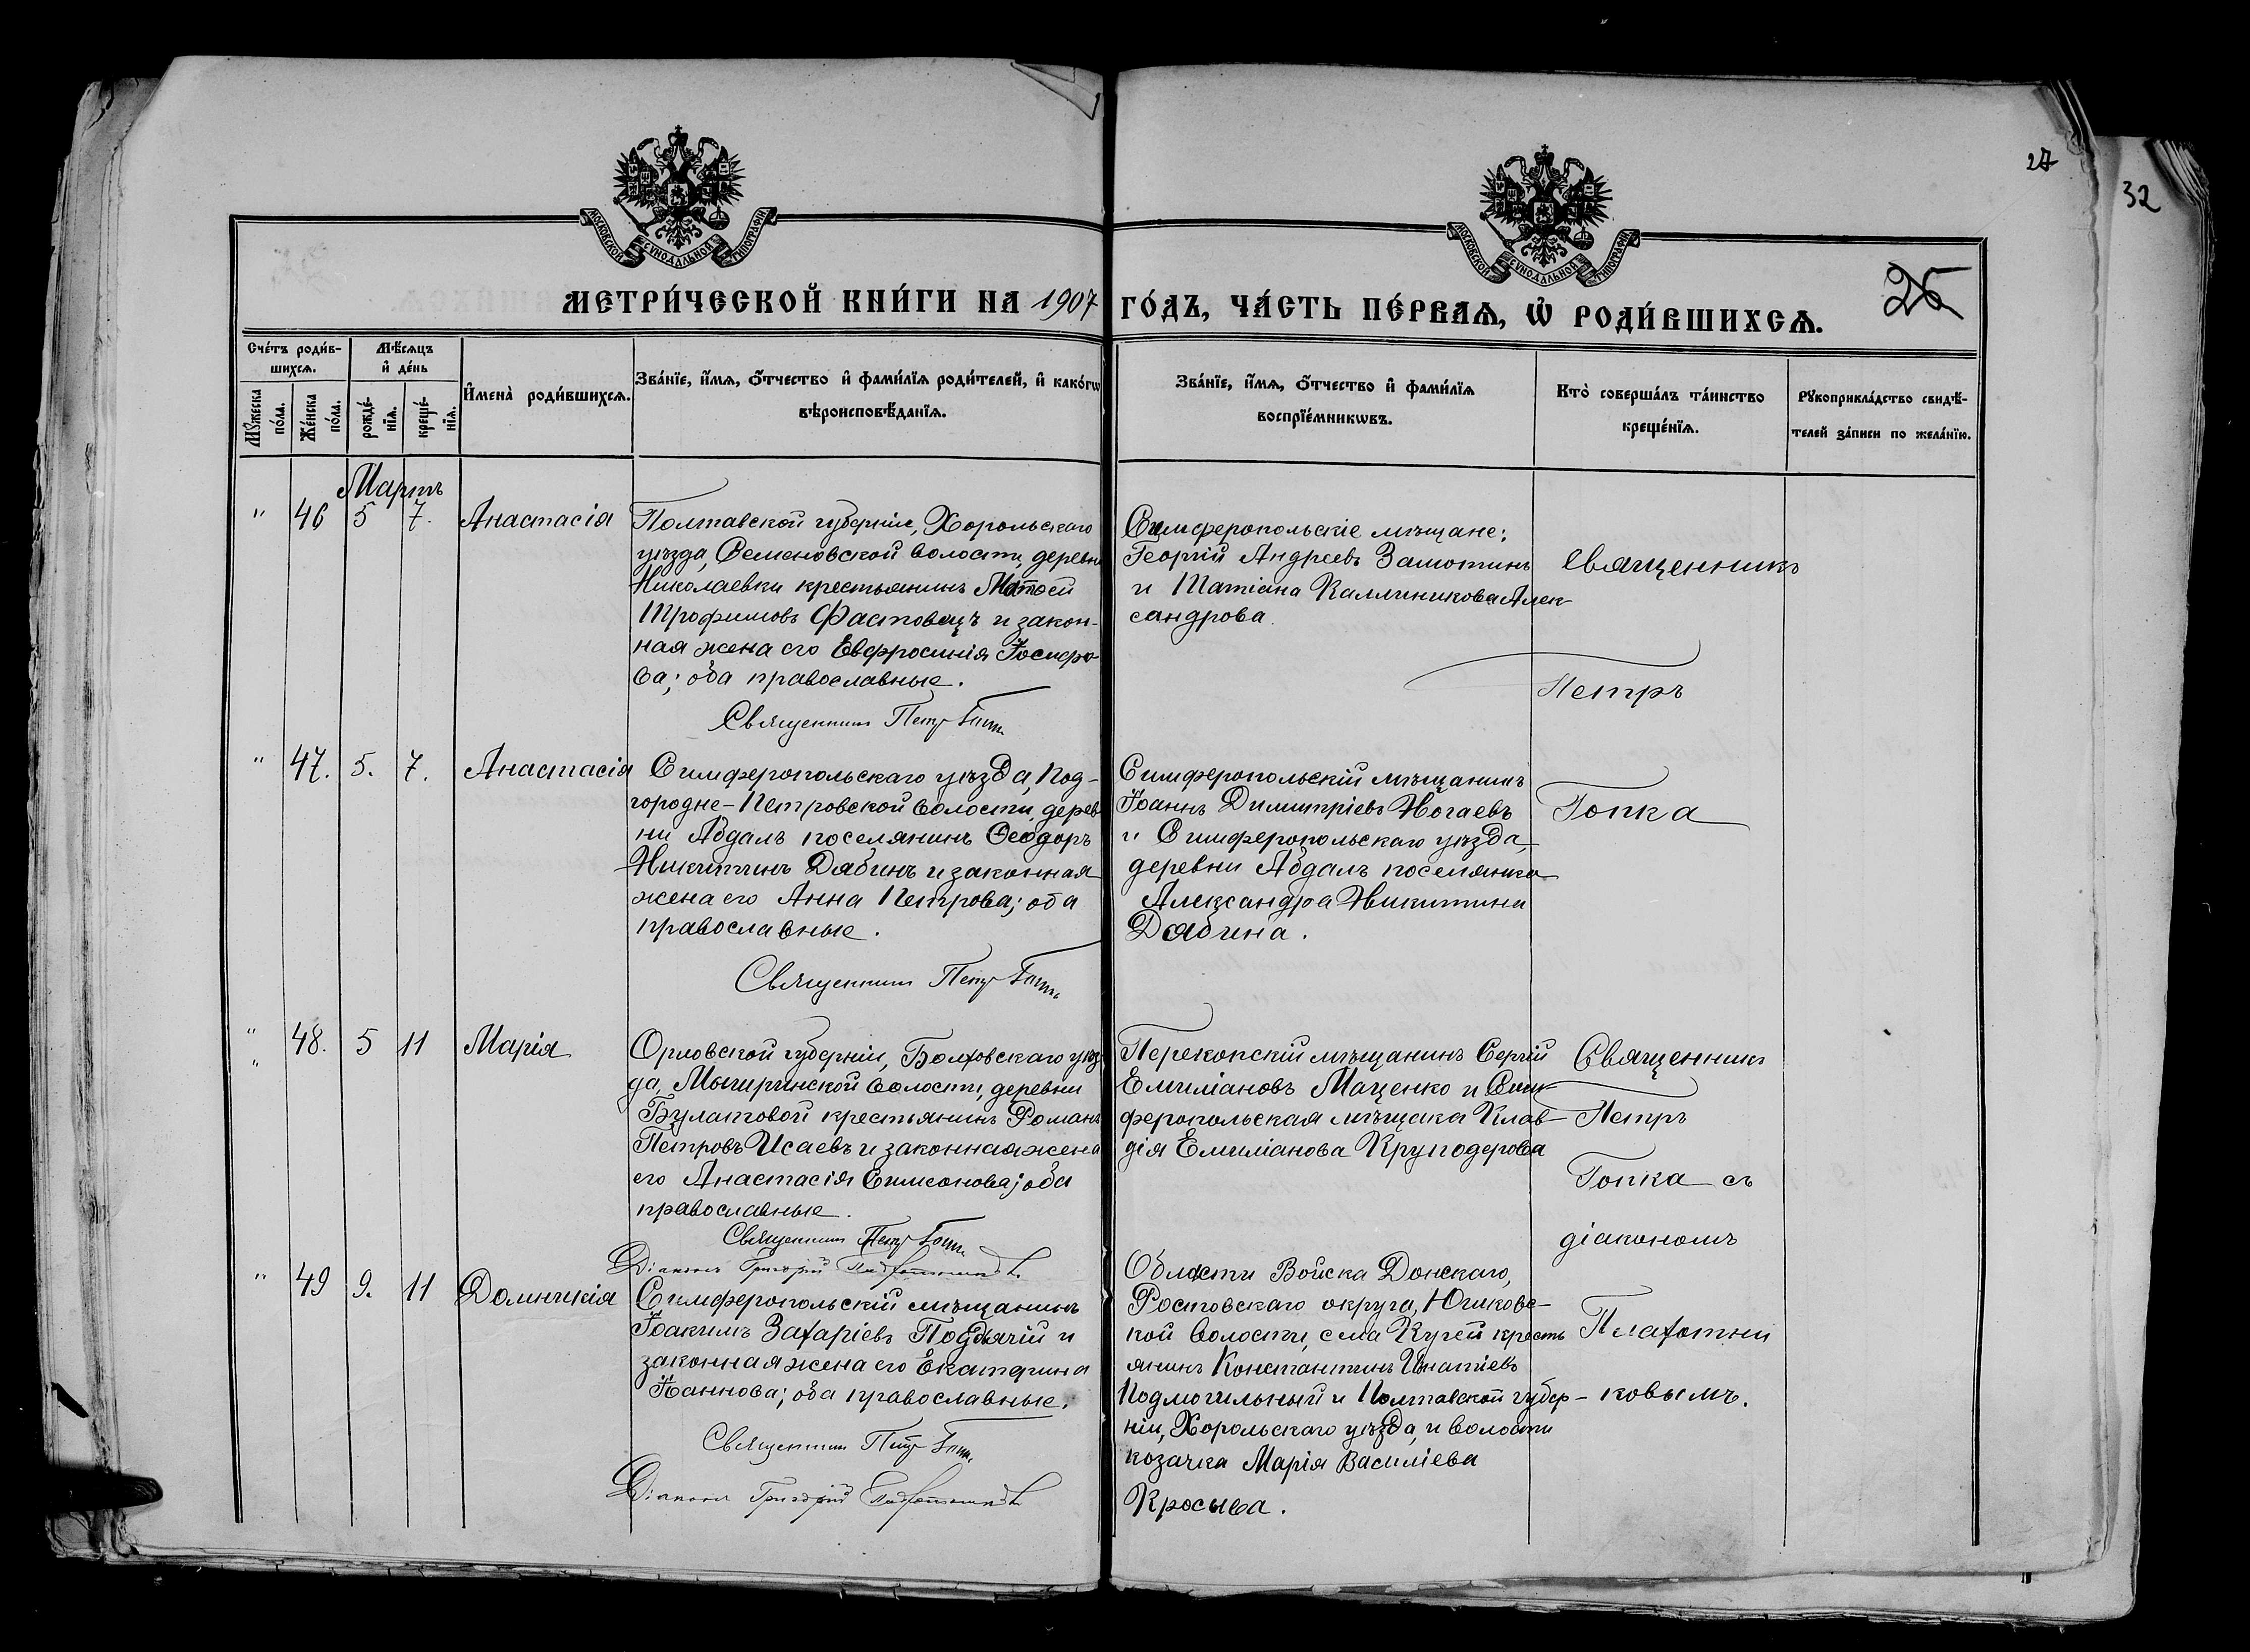 27
32
МОСКОВСКОЙ СѴНОДАЛЬНОЙ ТИПОГРАФІИ
МОСКОВСКОЙ СѴНОДАЛЬНОЙ ТИПОГРАФІИ
25
МЕТРИ́ЧЕСКОЙ КНИ́ГИ НА 1907 ГО́ДЪ, ЧА́СТЬ ПЕ́РВАѦ, Ѡ҆ РОДИ́ВШИХСѦ.
Сче́тъ роди́в-
шихсѧ.
Мѣ́сѧцъ
и҆ де́нь
Мꙋ́жеска по́ла.
Же́нска по́ла.
рожде́-
нїѧ.
креще́-
нїѧ.
И҆мена̀ роди́вшихсѧ.
Зва́нїе, и҆́мѧ, ѻ҆́тчество и҆ фами́лїѧ роди́телей, и҆ како́гѡ
вѣроисповѣ́данїѧ.
Зва́нїе, и҆́мѧ, ѻ҆́тчество и҆ фами́лїѧ
воспрїе́мникѡвъ.
Кто̀ соверша́лъ та́инство
креще́нїѧ.
Рꙋкоприкла́дство свидѣ́-
телей за́писи по жела́нїю.
Мартъ
" 46 5 7. Анастасія
Полтавской губерніи, Хорольскаго
уѣзда, Семеновской волости, деревни
Николаевки крестьянинъ
Трофимовъ Фастовецъ и закон-
ная жена его Евфросинія Іосифо-
ва; оба православные.
Священникъ Петръ Гопка
Симферопольскіе мѣщане:
Георгій Андреевъ Замотинъ
и Татіана Каллиникова Алек-
сандрова
священникъ
Петръ
" 47. 5. 7. Анастасія
Симферопольскаго уѣзда, Под-
городне-Петровской волости, дерев-
ни Абдалъ поселянинъ Ѳеодоръ
Никитинъ Дябинъ и законная
жена его Анна Петрова; оба
православные.
Священникъ Петръ Гопка
Симферопольскій мѣщанинъ
Іоаннъ Димитріевъ Ногаевъ
и Симферопольскаго уѣзда,
деревни Абдалъ поселянка
Александра Никитина
Дябина.
Гопка
" 48. 5 11 Марія
"
Орловской губерніи, Болховскаго уѣз-
да, волости, деревни
Булатовой крестьянинъ Романъ
Петровъ Исаевъ и законная жена
его Анастасія Симеонова; оба
православные.
Священникъ Петръ Гопка
Діаконъ Григорій Плахотниковъ
Перекопскій мѣщанинъ Сергій
Емиліановъ Маценко и Сим-
феропольская мѣщанка Клав-
дія Емиліанова Круподерова
Священникъ
Петръ
Гопка съ
діакономъ
" 49 9. 11 Домникія
Симферопольскій мѣщанинъ
Іоакимъ Захаріевъ Поддячій и
законная жена его Екатерина
Іоаннова; оба православные.
Священникъ Петръ Гопка
Діаконъ Григорій Плахотниковъ
Области Войска Донскаго,
Ростовскаго округа,
кой волости, села Кугей кресть
янинъ Константинъ Игнатіевъ
Подмогильный и Полтавской губер-
ніи, Хорольскаго уѣзда, и волости
козачка Марія Василіева
Кросыва.
Плахотни
ковымъ.